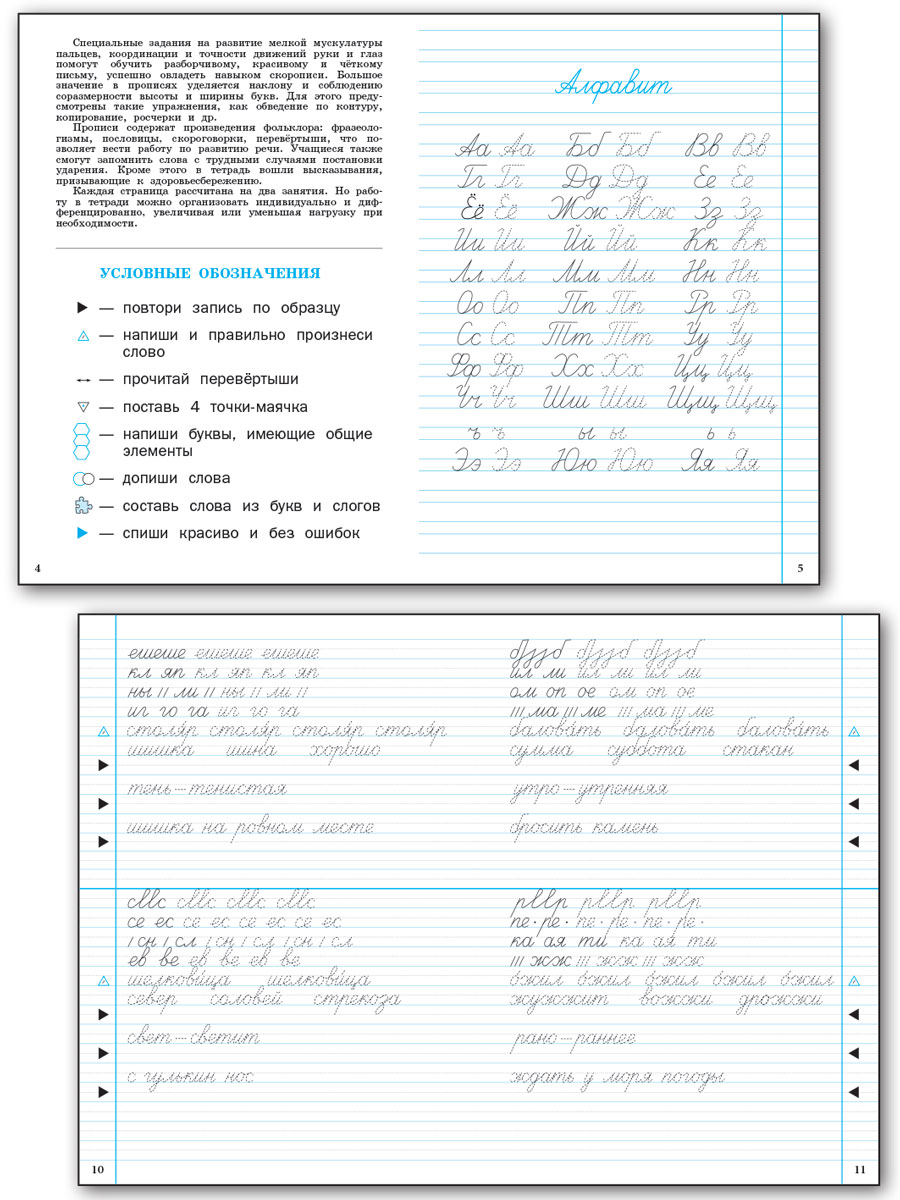 Специальные задания на развитие мелкой мускулатуры
пальцев, координации и точности движений руки и глаз
помогут обучить разборчивому, красивому и чёткому
письму, успешно овладеть навыком скорописи. Большое
значение в прописях уделяется наклону и соблюдению
соразмерности высоты и ширины букв. Для этого преду-
смотрены такие упражнения, как обведение по контуру,
копирование, росчерки и др.
Прописи содержат произведения фольклора: фразеоло-
гизмы, пословицы, скороговорки, перевёртыши, что по-
зволяет вести работу по развитию речи. Учащиеся также
смогут запомнить слова с трудными случаями постановки
ударения. Кроме этого в тетрадь вошли высказывания,
призывающие к здоровьесбережению.
Каждая страница рассчитана на два занятия. Но рабо-
ту в тетради можно организовать индивидуально и диф-
ференцированно, увеличивая или уменьшая нагрузку при
необходимости.
УСЛОВНЫЕ ОБОЗНАЧЕНИЯ
— повтори запись по образцу
— напиши и правильно произнеси
слово
— прочитай перевёртыши
— поставь 4 точки-маячка
— напиши буквы, имеющие общие
элементы
— допиши слова
— составь слова из букв и слогов
— спиши красиво и без ошибок
4
Алфавит
Аа Аа Бб Бб Вв Вв
Гг Гг Дд Дд Ее Ее
Ёё Ёё Жж Жж Зз Зз
Ии Ии Йй Йй Кк Кк
Лл Лл Мм Мм Нн Нн
Оо Оо Пп Пп Рр Рр
Сс Сс Тт Тт Уу Уу
Фф Фф Хх Хх Цц Цц
Чч Чч Шш Шш Щщ Щщ
ъ ъ ы ы ь ь
Ээ Ээ Юю Юю Яя Яя
5
ешеше ешеше ешеше
кл яп кл яп кл яп
ны // ли // ны // ли //
иг го га иг го га
столя́р столя́р столя́р столя́р
шишка шина хорошо
тень — тенистая
шишка на ровном месте
ил ли ил ли ил ли
ом оп ое ом оп ое
/// ма /// ме /// ма /// ме
балова́ть балова́ть балова́ть
сумма суббота стакан
утро — утренняя
бросить камень
се ес се ес се ес се ес
/ сн / сл / сн / сл / сн / сл
ев ве ев ве ев ве
шелкови́ца шелкови́ца
север соловей стрекоза
свет — светит
с гулькин нос
10
пе · ре · пе · ре · пе · ре ·
ка ая ти ка ая ти
/// жж /// жж /// жж
о́жил о́жил о́жил о́жил о́жил
жужжит вожжи дрожжи
рано — раннее
ждать у моря погоды
11